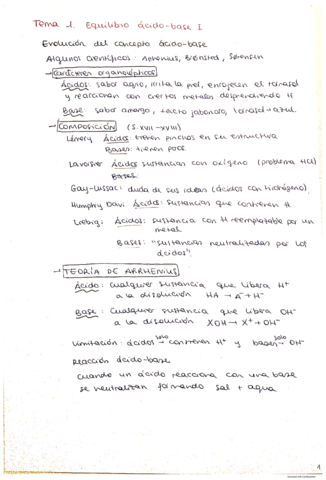 Tema 1. Equilibrio ácido-base I
Evolución del concepto ácido-base
Algunos científicos: Arrhenius, Brönsted, Sørensen
→ Caracteres organolépticos
Ácidos: sabor agrio, irrita la piel, enrojecen el tornasol
y reaccionan con ciertos metales desprendiendo H
Base: sabor amargo, tacto jabonoso, tornasol → azul.
→ COMPOSICIÓN (S. XVII - XVIII)
Lémery Ácidos: tienen pinchos en su estructura
Bases: tienen poros.
Lavoisier Ácidos sustancias con oxígeno (problema HCl)
Bases:
Gay-Lussac: duda de sus ideas (ácidos con hidrógeno).
Humphry Davi Ácidos: sustancias que contienen H
Liebig: Ácidos: sustancia con H reemplazable por un
metal.
Bases: "sustancias neutralizadas por los
ácidos".
→ TEORÍA DE ARRHENIUS
Ácido: cualquier sustancia que libera H+
a la disolución HA → A- + H+
Base: Cualquier sustancia que libera OH-
a la disolución XOH → X+ + OH-
Limitación: ácidos solo → contienen H+ y bases solo → OH-
Reacción ácido-base
cuando un ácido reacciona con una base
se neutralizan formando sal + agua
1